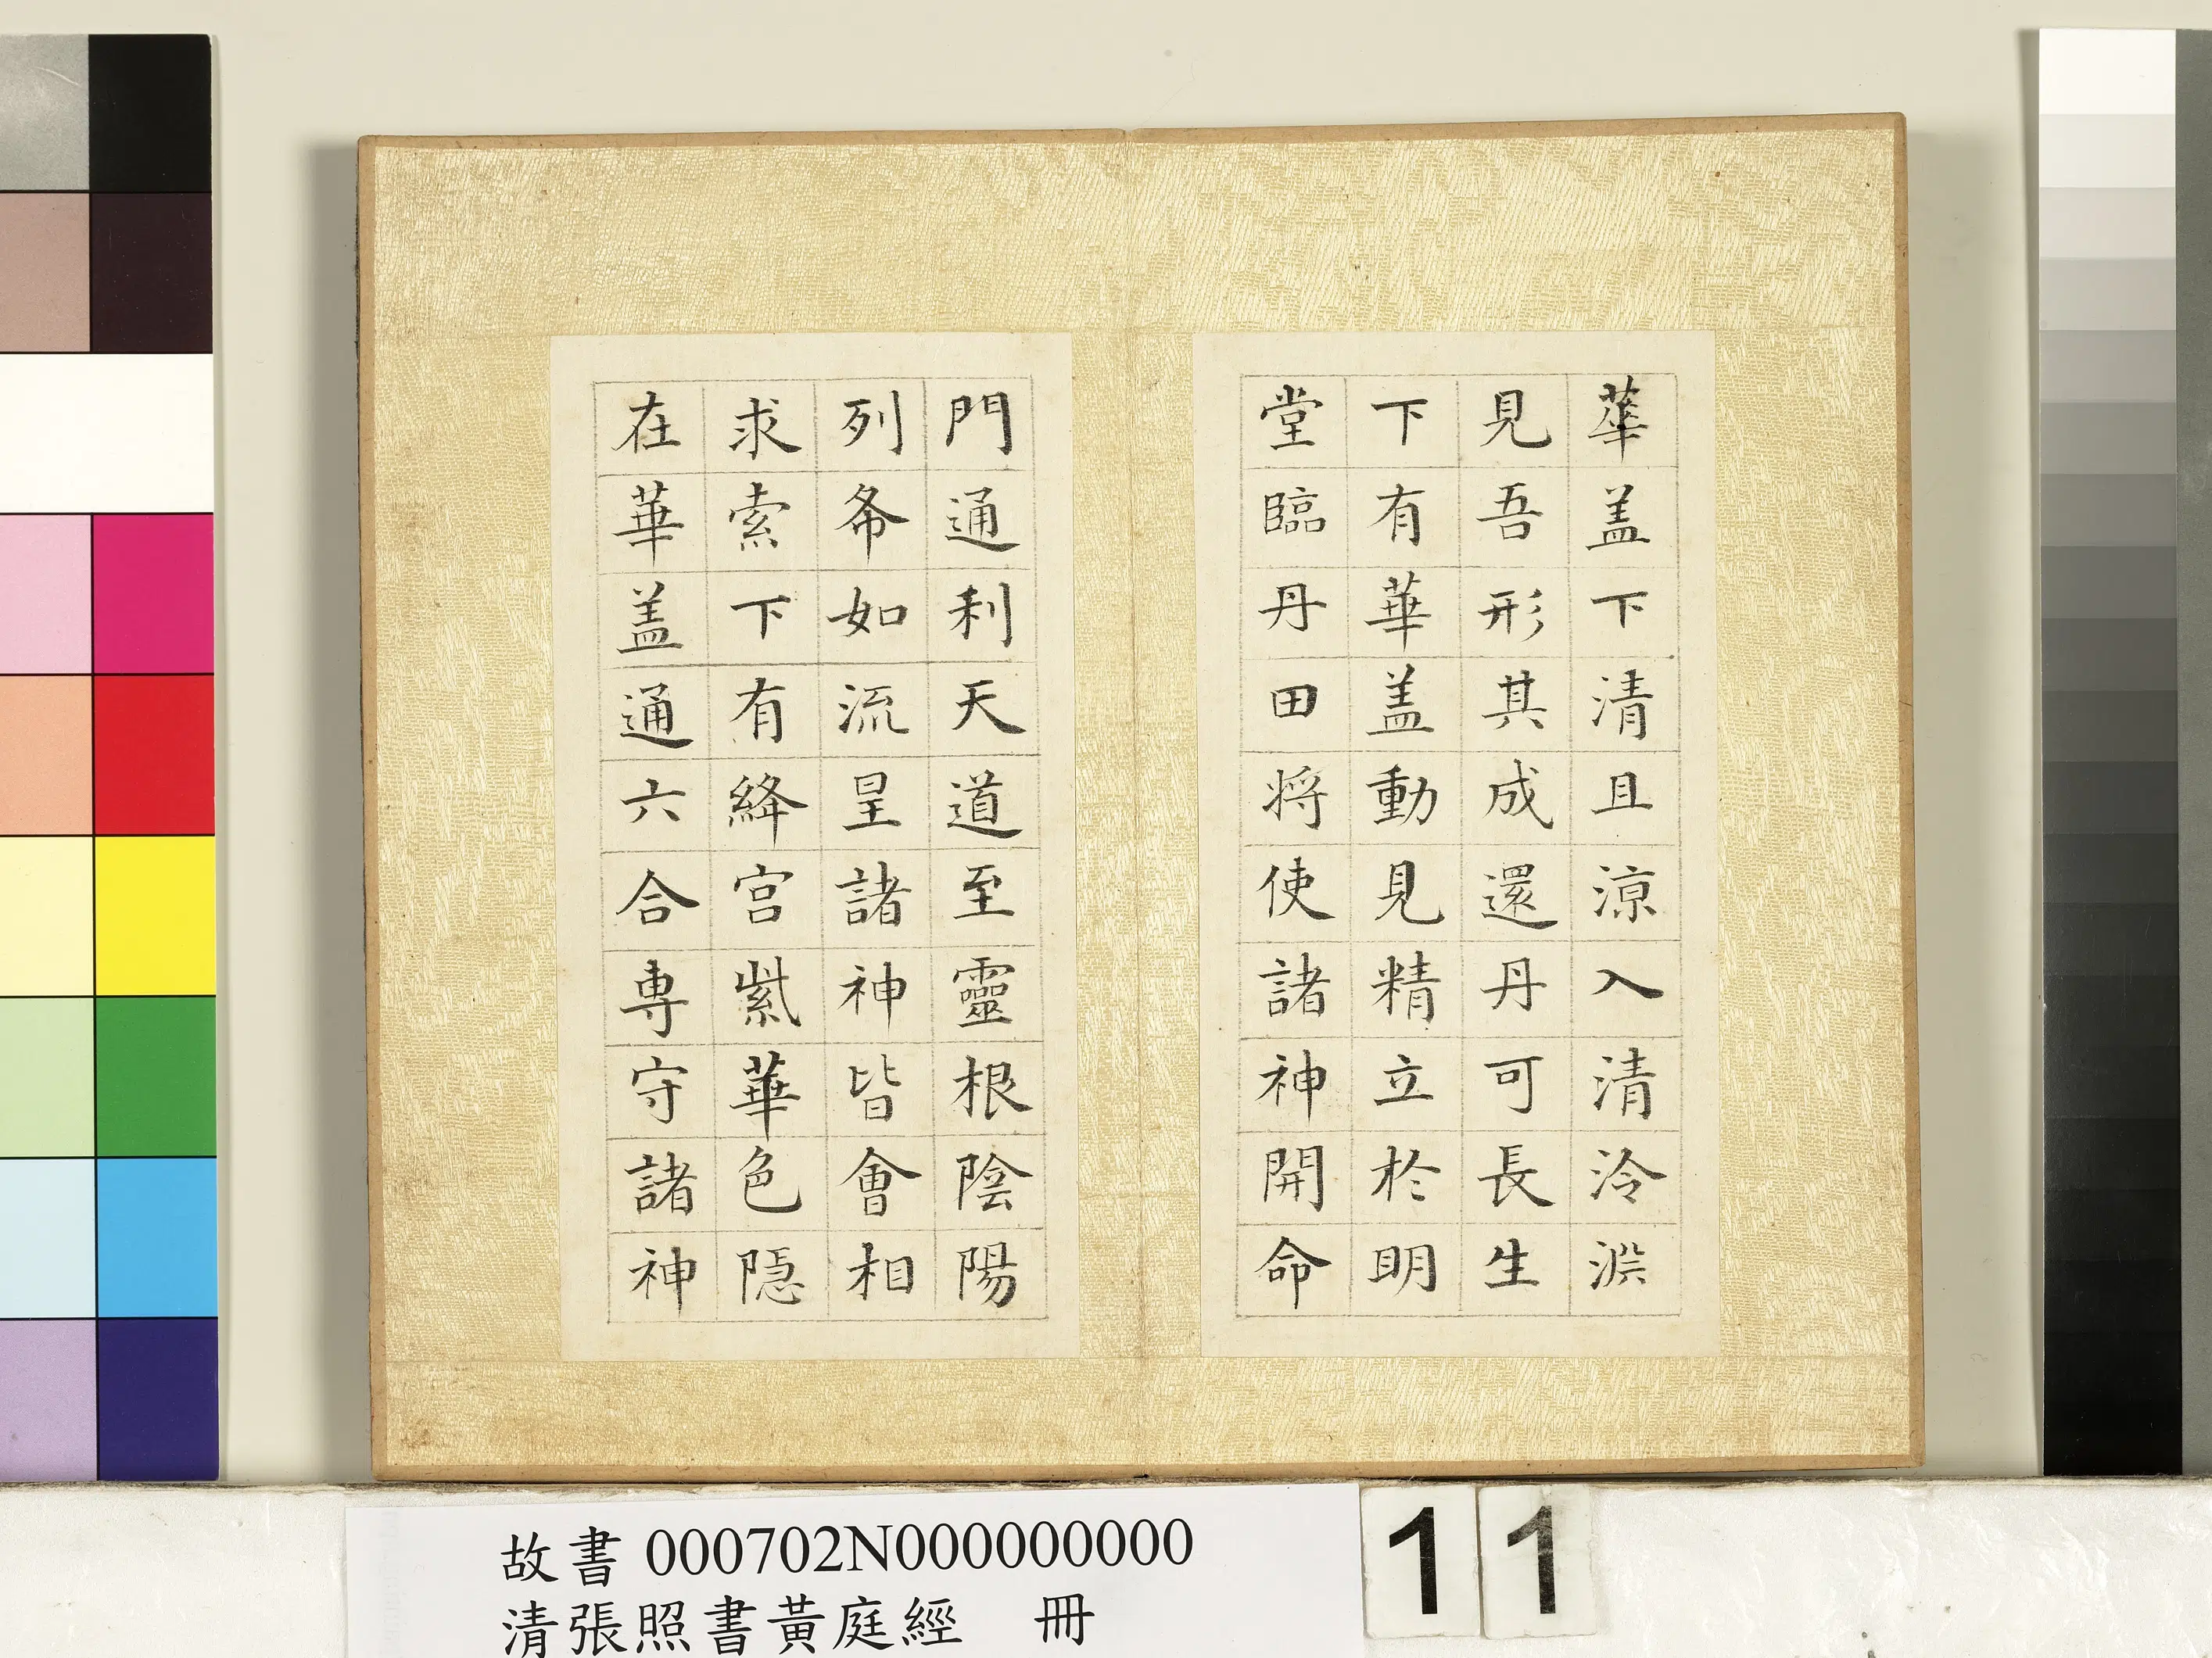 華盖下清且涼入清泠淵
見吾形其成還丹可長生
下有華盖動見精立於明
堂臨丹田将使諸神開命
門通利天道至靈根陰陽
列布如流星諸神皆會相
求索下有絳宮紫華色隠
在華盖通六合専守諸神
故書000702N000000000
清張照書黃庭經 冊
11